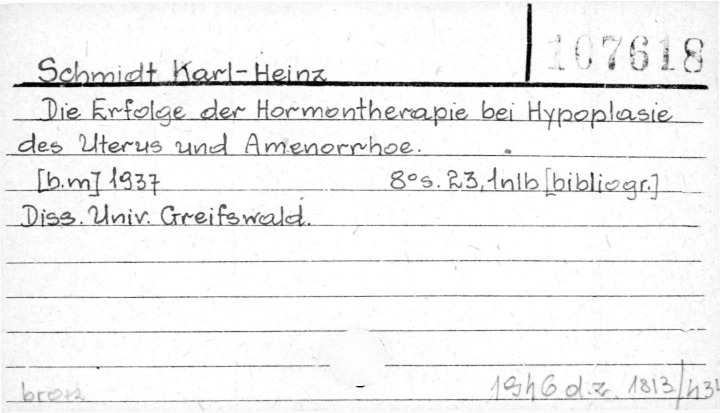 107618
Schmidt Karl-Heinz
Die Erfolge der Hormontherapie bei Hypoplasie
des Uterus und Amenorrhoe.
[b.m] 1937 8° s. 23, 1nlb [bibliogr.]
Diss. Univ. Greifswald.
1946 d.z. 1813/434